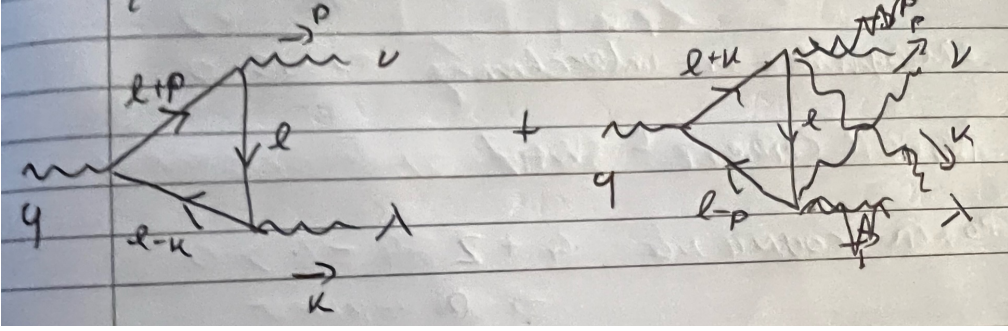 p
ν
l+p
l
q
l-k
λ
k
+
p
l+k
ν
l
k
q
l-p
λ